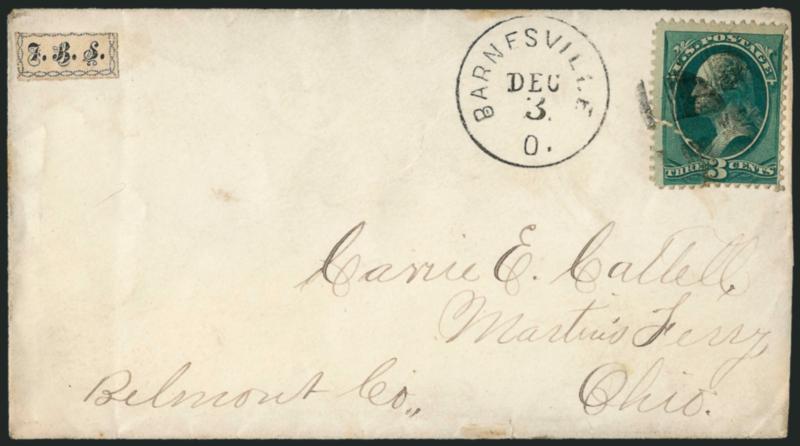 J. B. S.
BARNESVILLE
DEC
3
O.
U.S. POSTAGE
THREE 3 CENTS
Carrie E. Cattell,
Martin's Ferry
Belmont Co., Ohio.